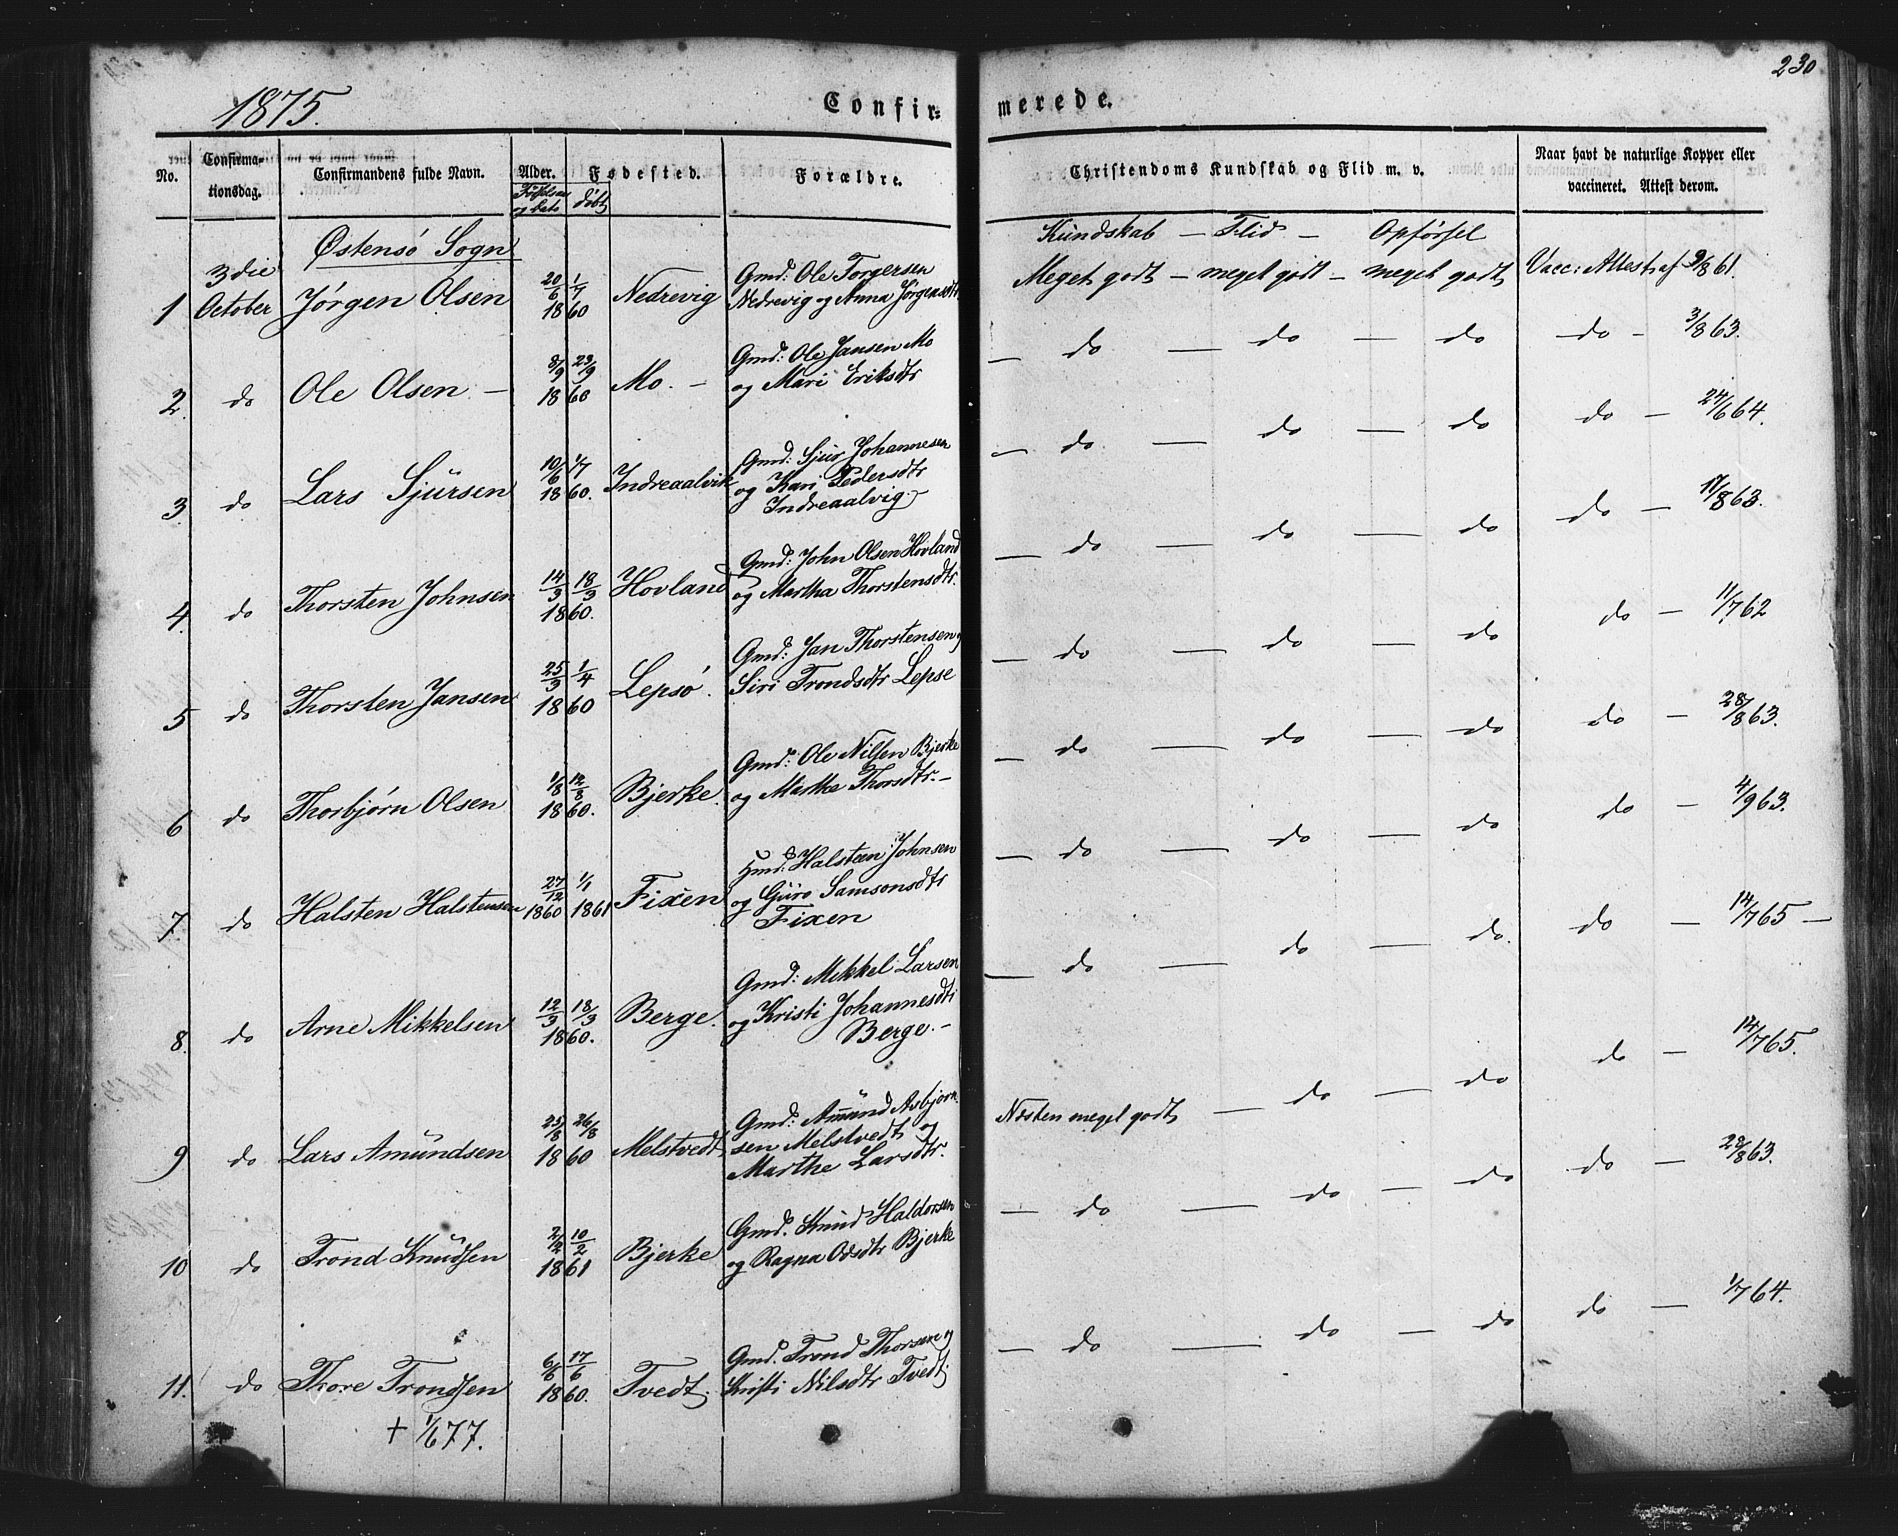 230
1875.
Confir= merede.
No.
Confirma-
tionsdag.
Confirmandens fulde Navn.
Alder.
Fødselsaar
og Dato
døbt
Fødested.
Forældre.
Christendoms Kundskab og Flid m. v.
Naar havt de naturlige Kopper eller
vaccineret. Attest derom.
Østensø Sogn
Kundskab — Flid — Opførsel
1 3die October Jørgen Olsen 20/6 1/7 1860 Nedrevig Gmd: Ole Torgersen
Nedrevig og Anna Jørgensdtr
Meget godt — meget godt — meget godt Vacc: Attest af 9/8 61.
2. do Ole Olsen — 8/9 23/9 1860 Mo. — Gmd: Ole Jansen Mo
og Mari Eriksdtr
— do — do — do do — 3/8 63.
3. do Lars Sjursen 10/6 1/7 1860. Indreaalvik Gmd: Sjur Johannesen
og Kari Pedersdtr
Indreaalvig —
— do — do — do do — 24/6 64.
4. do Thorsten Johnsen 14/3 18/3 1860. Hovland Gmd: John Olsen Hovland
og Martha Thorstensdtr.
— do — do — do do — 17/8 63.
5 do Thorsten Jansen 25/3 1/4 1860 Lepsø. Gmd: Jan Thorstensen og
Siri Trondsdtr Lepse
— do — do — do do — 11/7 62
6 do Thorbjørn Olsen 1/8 12/8 1860. Bjerke. Gmd: Ole Nilsen Bjerke
og Marthe Thorsdtr. —
— do — do — do do — 28/8 63.
7. do Halsten Halstensen 27/12 1860 1/1 1861 Fixen Hmd. Halsteen Johnsen
og Guro Samsonsdtr
Fixen
— do — do — do do — 4/9 63.
8. do Arne Mikkelsen 12/3 18/3 1860. Berge. Gmd: Mikkel Larsen
og Kristi Johannesdtr
Berge. —
— do — do — do. do — 14/7 65 —
9 do Lars Amundsen 25/8 26/8 1860 Melstvedt Gmd: Amund Asbjørn
sen Melstvedt og
Marthe Larsdtr.
Næsten meget godt — do — do do — 14/7 65.
10 do Trond Knudsen 2/2 10/2 1861 Bjerke Gmd. Knud Haldorsen
og Ragna Odsdtr Bjerke
— do — do — do do — 28/8 63.
11. do Thore Trondsen 6/6 17/6 1860. Tvedt. Gmd. Trond Thorsen og
Kristi Nilsdtr Tvedt.
— do — do — do do — 1/7 64.
+ 1/6 77.